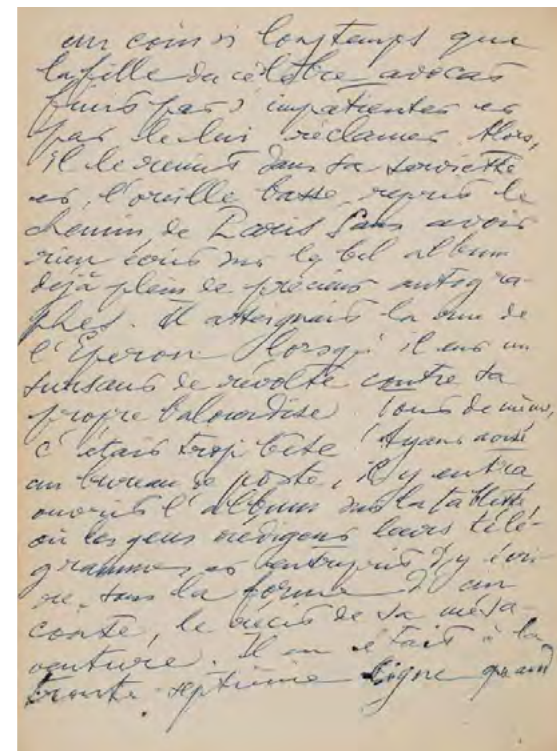 un coin si longtemps que
la fille du célèbre avocat
finit par s'impatienter et
par le lui réclamer. Alors,
il le remit dans sa serviette
et, l'oreille basse, reprit le
chemin de Paris sans avoir
rien écrit sur le bel album
déjà plein de précieux autogra-
phes. Il atteignait la rue de
l'Éperon lorsqu'il eut un
sursaut de révolte contre sa
propre balourdise. Tout de même,
c'était trop bête ! Ayant avisé
un bureau de poste, il y entra
ouvrit l'album sur la tablette
où les gens rédigent leurs télé-
grammes et entreprit d'y écri-
re, sous la forme d'un
conte, le récit de sa mésa-
venture. Il en était à la
trente-septième ligne quand